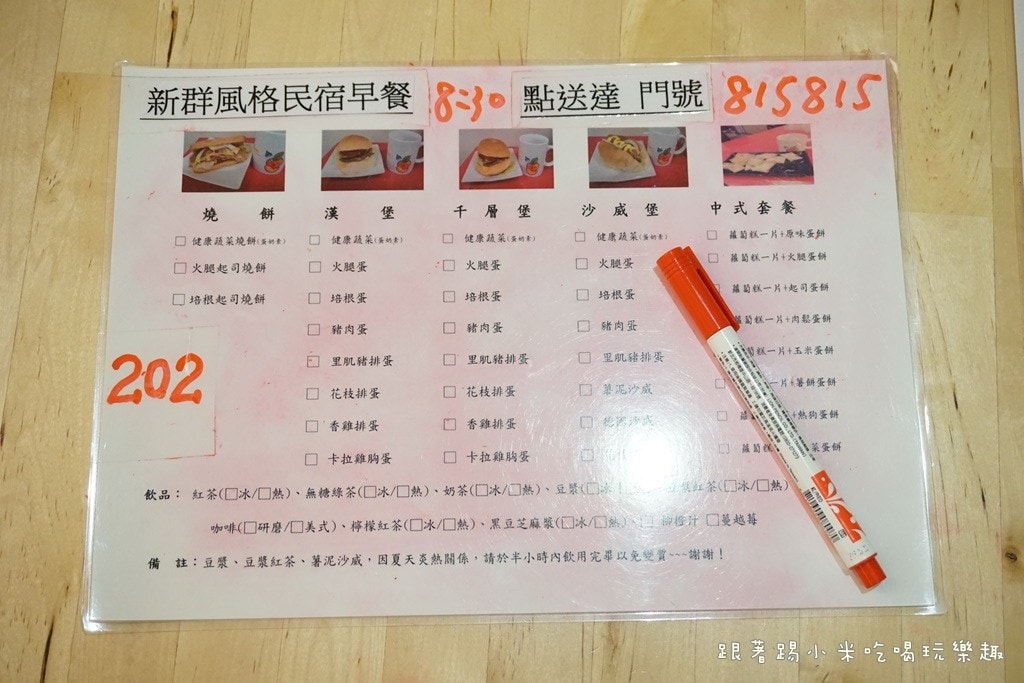 新群風格民宿早餐 8:30 點送達 門號 815815
燒餅 漢堡 千層堡 沙威堡 中式套餐
□健康蔬菜燒餅(蛋奶素) □健康蔬菜(蛋奶素) □健康蔬菜(蛋奶素) □健康蔬菜(蛋奶素) □蘿蔔糕一片+原味蛋餅
□火腿起司燒餅 □火腿蛋 □火腿蛋 □火腿蛋 □蘿蔔糕一片+火腿蛋餅
□培根起司燒餅 □培根蛋 □培根蛋 □培根蛋 蘿蔔糕一片+起司蛋餅
□豬肉蛋 □豬肉蛋 □豬肉蛋 蘿蔔糕一片+肉鬆蛋餅
□里肌豬排蛋 □里肌豬排蛋 □里肌豬排蛋 蔔糕一片+玉米蛋餅
202
□花枝排蛋 □花枝排蛋 □薯泥沙威 一片+薯餅蛋餅
□香雞排蛋 □香雞排蛋 □ □蘿蔔 +熱狗蛋餅
□卡拉雞胸蛋 □卡拉雞胸蛋 □ □蘿蔔糕 菜蛋餅
飲品： 紅茶(□冰/□熱)、無糖綠茶(□冰/□熱)、奶茶(□冰/□熱)、豆漿(□冰 紅茶(□冰/□熱)
咖啡(□研磨/□美式)、檸檬紅茶(□冰/□熱)、黑豆芝麻漿(□冰/□熱)、□柳橙汁 □蔓越莓
備 註：豆漿、豆漿紅茶、薯泥沙威，因夏天炎熱關係，請於半小時內飲用完畢以免變質~~~謝謝！
跟著踢小米吃喝玩樂趣